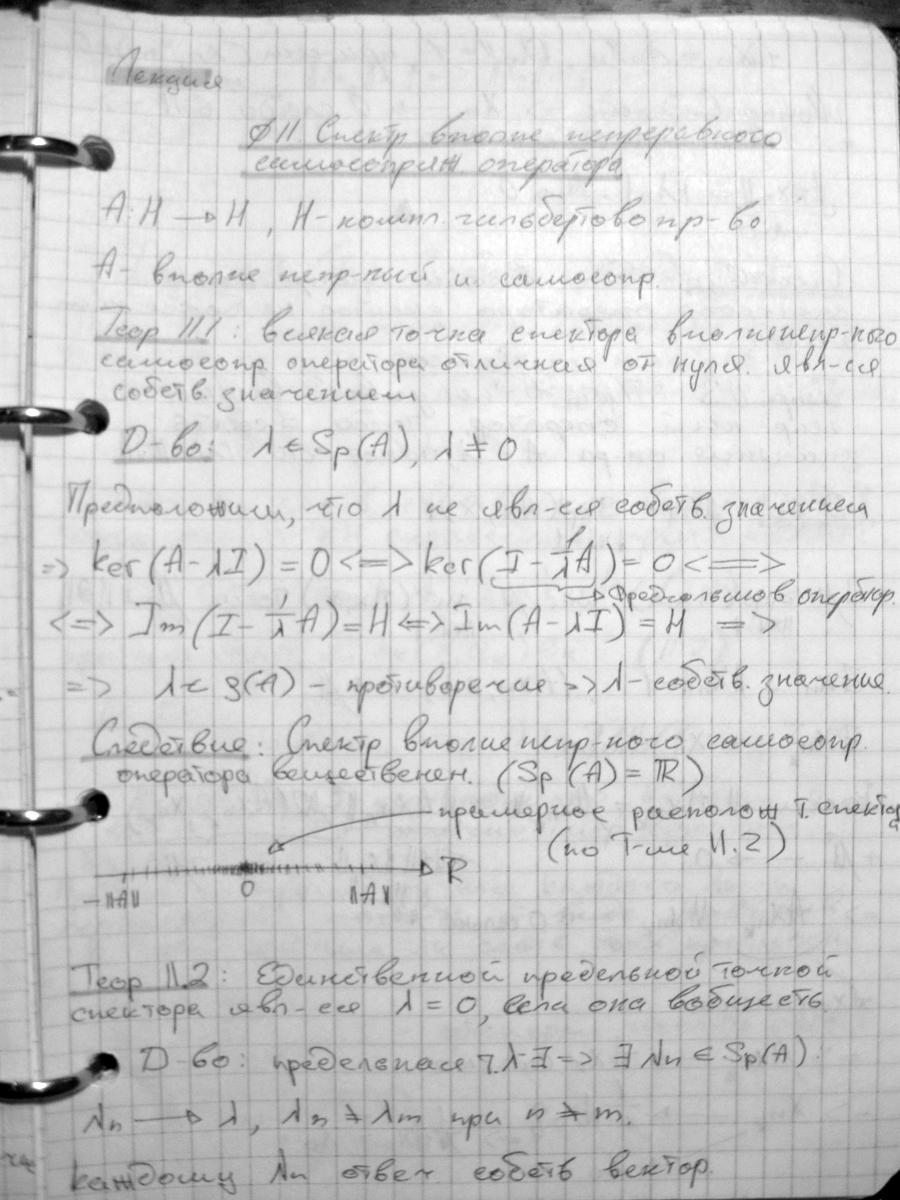 Лекция
§11 Спектр вполне непрерывного
самосопряж оператора
A: H → H, H - компл. гильбертово пр-во
A - вполне непр-ный и самосопр.
Теор 11.1: всякая точка спектора вполне непр-ного
самосопр. оператора отличная от нуля. явл-ся
собств. значением
Д-во: λ ∈ Sp(A), λ ≠ 0
Предположим, что λ не явл-ся собств. значением
=> ker(A - λI) = 0 <=> ker(I - 1/λ A) = 0 <=>
Фредгольмов оператор.
<=> Im(I - 1/λ A) = H <=> Im(A - λI) = H =>
=> λ ∈ ρ(A) - противоречие => λ - собств. значение.
Следствие: Спектр вполне непр-ного самосопр.
оператора веществененен. (Sp(A) = ℝ)
примерное располож т. спектра
(по Т-ме 11.2)
-||A|| 0 ||A|| ℝ
Теор 11.2: Единственной предельной точкой
спектора явл-ся λ = 0, если она вообще есть.
Д-во: предельная т. λ ∃ => ∃ λn ∈ Sp(A):
λn → λ, λn ≠ λm при n ≠ m.
каждому λn отвеч собств вектор.